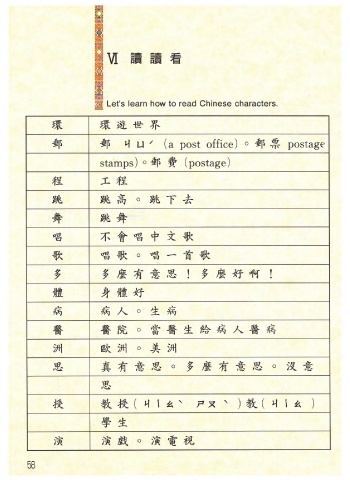 Ⅵ 讀讀看
Let's learn how to read Chinese characters.
環 環遊世界
郵 郵ㄐㄩˊ(a post office)。郵票 postage
stamps)。郵費(postage)
程 工程
跳 跳高。跳下去
舞 跳舞
唱 不會唱中文歌
歌 唱歌。唱一首歌
多 多麼有意思!多麼好啊!
體 身體好
病 病人。生病
醫 醫院。當醫生給病人醫病
洲 歐洲。美洲
思 真有意思。多麼有意思。沒意
思
授 教授(ㄐㄧㄠˋ ㄕㄡˋ)教(ㄐㄧㄠ)
學生
演 演戲。演電視
58